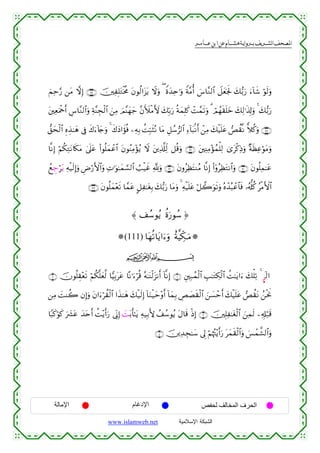 المصحف الشريف برواية هشام عن ابن عامر
وَلَوْ شَآءَ رَبُّكَ لَجَعَلَ ٱلنَّاسَ أُمَّةً وَٰحِدَةً ۖ وَلَا يَزَالُونَ مُخْتَلِفِينَ ۝ إِلَّا مَن رَّحِمَ
رَبُّكَ ۚ وَلِذَٰلِكَ خَلَقَهُمْ ۗ وَتَمَّتْ كَلِمَةُ رَبِّكَ لَأَمْلَأَنَّ جَهَنَّمَ مِنَ ٱلْجِنَّةِ وَٱلنَّاسِ أَجْمَعِينَ
۝ وَكُلًّا نَّقُصُّ عَلَيْكَ مِنْ أَنۢبَآءِ ٱلرُّسُلِ مَا نُثَبِّتُ بِهِۦ فُؤَادَكَ ۚ وَجَآءَكَ فِى هَٰذِهِ ٱلْحَقُّ
وَمَوْعِظَةٌ وَذِكْرَىٰ لِلْمُؤْمِنِينَ ۝ وَقُل لِّلَّذِينَ لَا يُؤْمِنُونَ ٱعْمَلُوا۟ عَلَىٰ مَكَانَتِكُمْ إِنَّا
عَٰمِلُونَ ۝ وَٱنتَظِرُوٓا۟ إِنَّا مُنتَظِرُونَ ۝ وَلِلَّهِ غَيْبُ ٱلسَّمَٰوَٰتِ وَٱلْأَرْضِ وَإِلَيْهِ يَرْجِعُ
ٱلْأَمْرُ كُلُّهُۥ فَٱعْبُدْهُ وَتَوَكَّلْ عَلَيْهِ ۚ وَمَا رَبُّكَ بِغَٰفِلٍ عَمَّا تَعْمَلُونَ ۝
﴿ سُورَةُ يُوسُفَ ﴾
* مَكِّيَّةٌ وَءَايَاتُهَا (111) *
بِسْمِ ٱللَّهِ ٱلرَّحْمَٰنِ ٱلرَّحِيمِ
الٓر ۚ تِلْكَ ءَايَٰتُ ٱلْكِتَٰبِ ٱلْمُبِينِ ۝ إِنَّآ أَنزَلْنَٰهُ قُرْءَٰنًا عَرَبِيًّا لَّعَلَّكُمْ تَعْقِلُونَ ۝
نَحْنُ نَقُصُّ عَلَيْكَ أَحْسَنَ ٱلْقَصَصِ بِمَآ أَوْحَيْنَآ إِلَيْكَ هَٰذَا ٱلْقُرْءَانَ وَإِن كُنتَ مِن
قَبْلِهِۦ لَمِنَ ٱلْغَٰفِلِينَ ۝ إِذْ قَالَ يُوسُفُ لِأَبِيهِ يَٰٓأَبَتِ إِنِّى رَأَيْتُ أَحَدَ عَشَرَ كَوْكَبًا
وَٱلشَّمْسَ وَٱلْقَمَرَ رَأَيْتُهُمْ لِى سَٰجِدِينَ ۝
الحرف المخالف لحفص الإدغام الإمالة
الشبكة الإسلامية www.islamweb.net